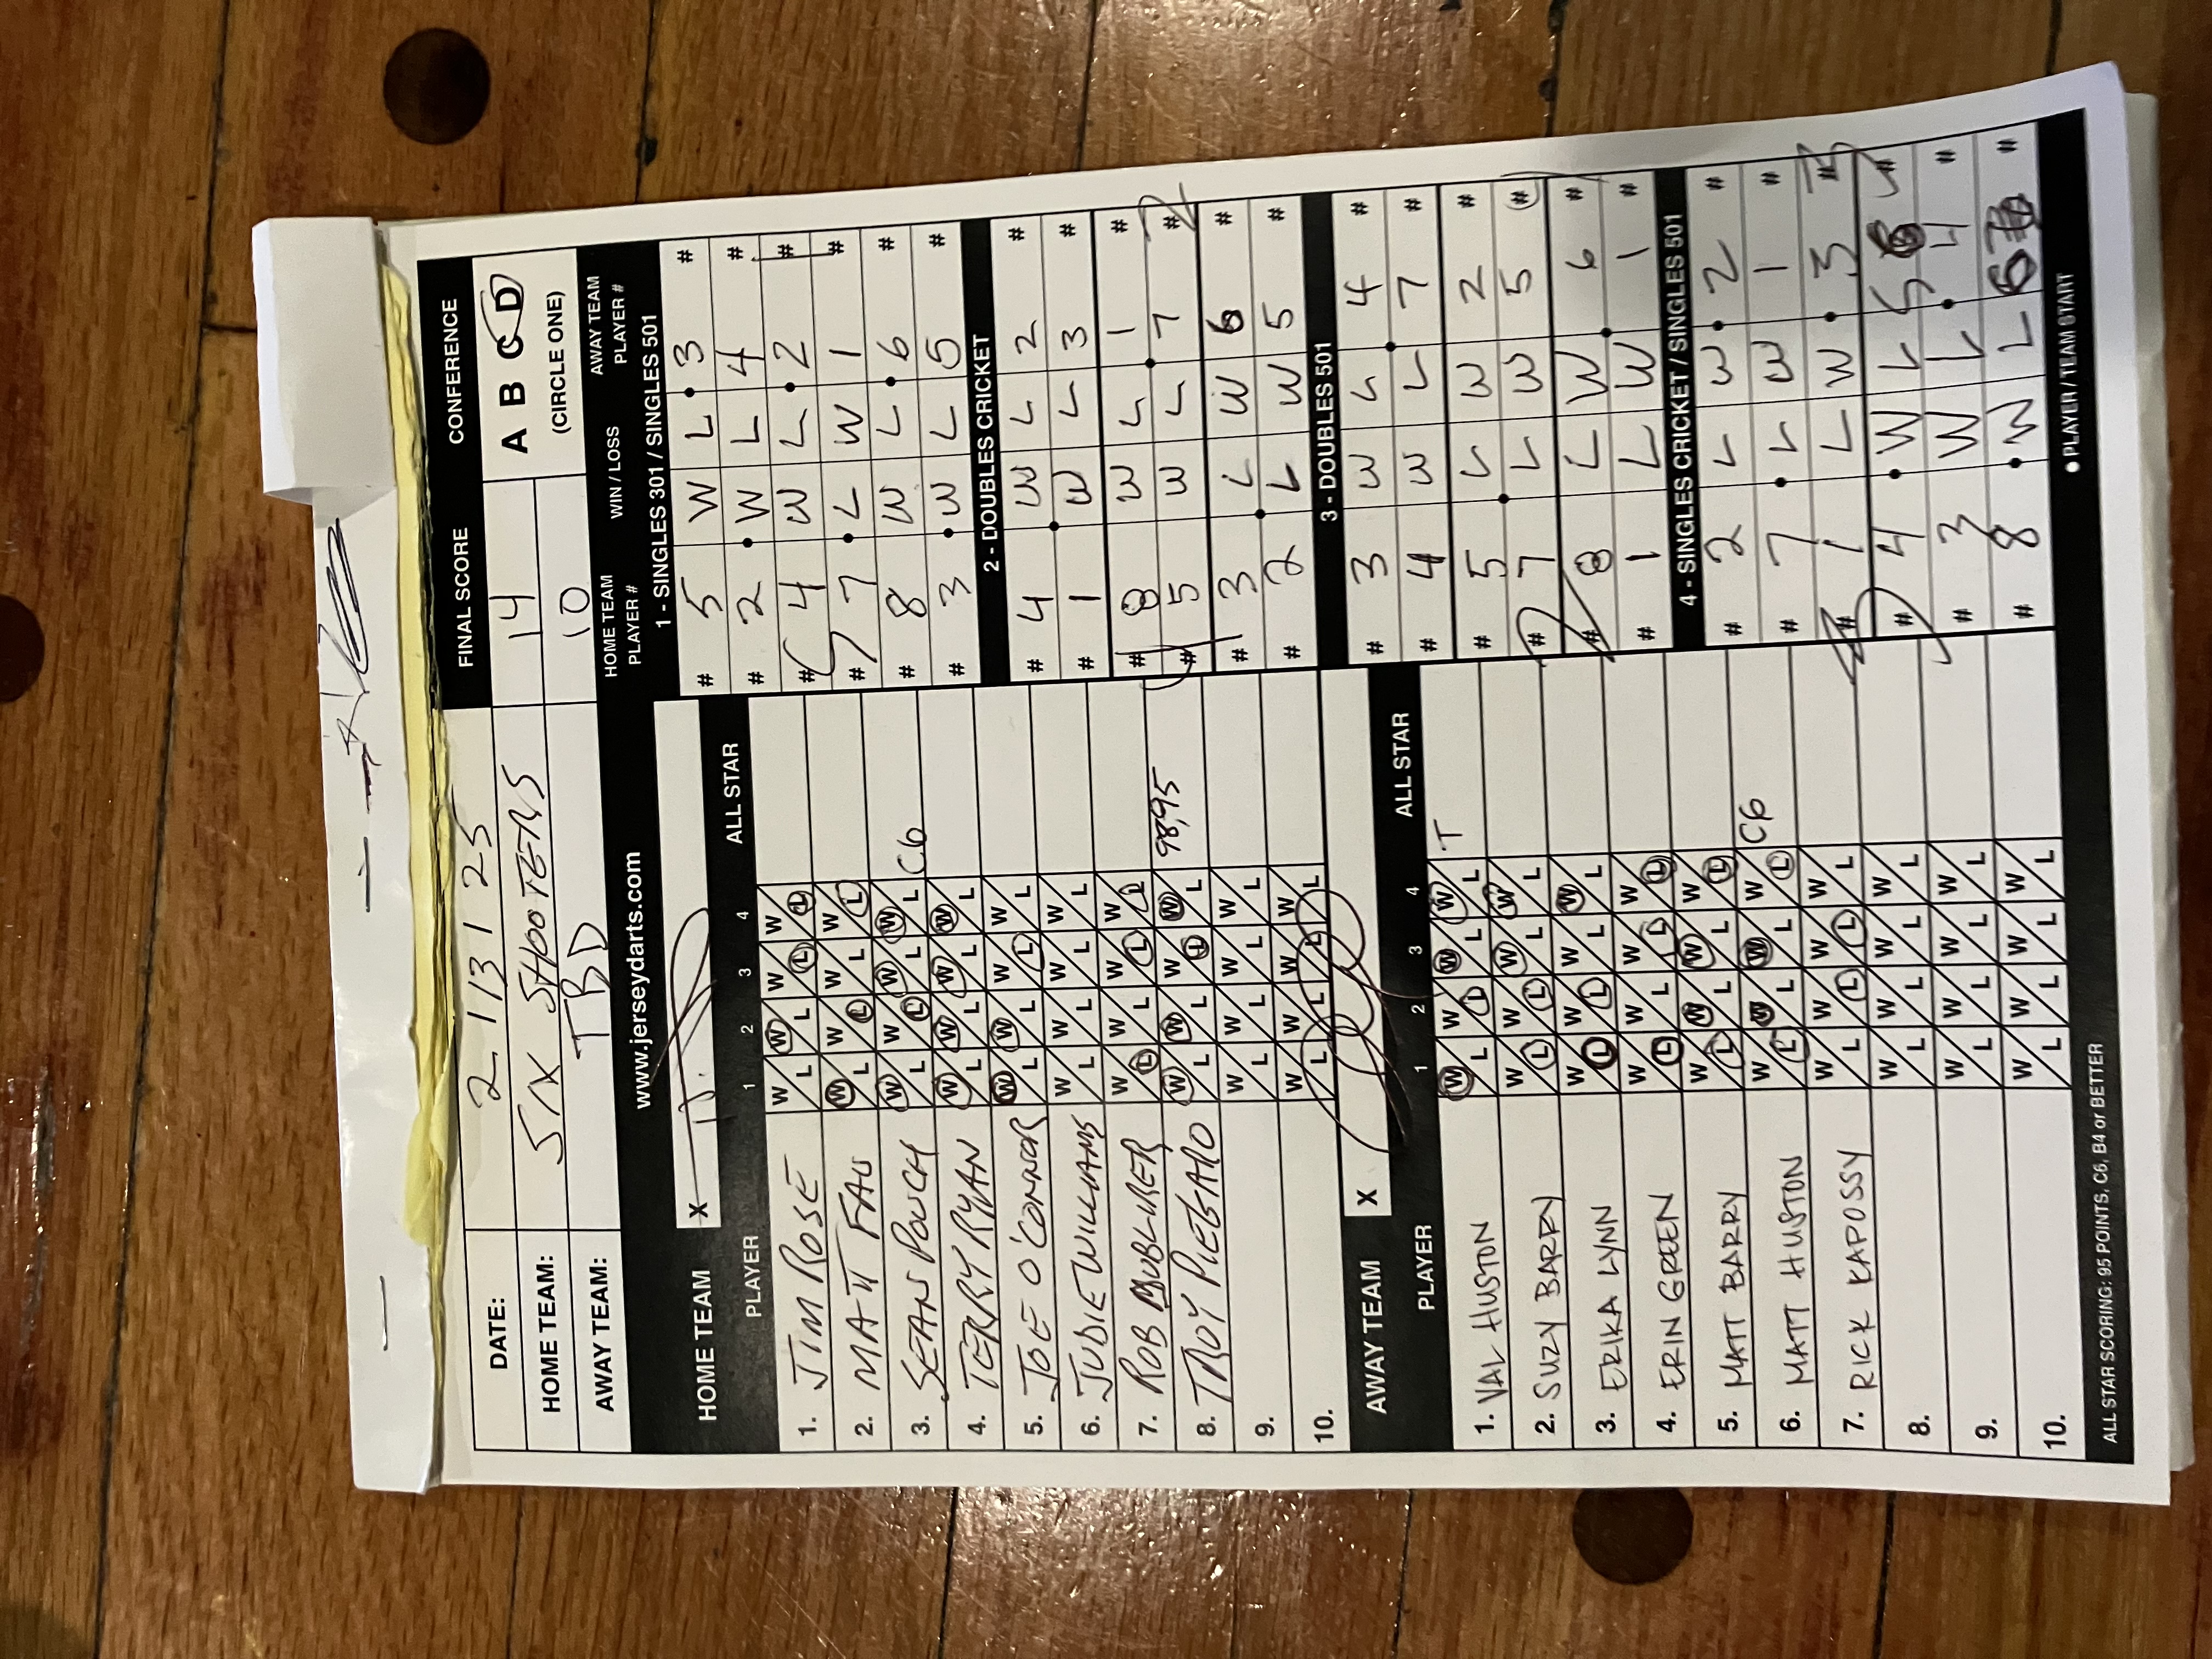 DATE: 2 / 13 / 25 FINAL SCORE CONFERENCE
HOME TEAM: SIX SHOOTERS 14 A B C D
AWAY TEAM: TBD 10 (CIRCLE ONE)
www.jerseydarts.com
HOME TEAM X
PLAYER 1 2 3 4 ALL STAR
1. JIM ROSE W L W L W L W L
2. MATT FAU W L W L W L W L
3. SEAN POUCH W L W L W L W L C6
4. TERRY RYAN W L W L W L W L
5. JOE O'CONNOR W L W L W L W L
6. JUDIE WILLIAMS W L W L W L W L
7. ROB BUBLURER W L W L W L W L
8. TROY PIEGARO W L W L W L W L 98,95
9. W L W L W L W L
10. W L W L W L W L
AWAY TEAM X
PLAYER 1 2 3 4 ALL STAR
1. VAL HUSTON W L W L W L W L T
2. SUZY BARRY W L W L W L W L
3. ERIKA LYNN W L W L W L W L
4. ERIN GREEN W L W L W L W L
5. MATT BARRY W L W L W L W L
6. MATT HUSTON W L W L W L W L C6
7. RICK KAPOSSY W L W L W L W L
8. W L W L W L W L
9. W L W L W L W L
10. W L W L W L W L
ALL STAR SCORING: 95 POINTS, C6, B4 or BETTER
HOME TEAM PLAYER # WIN / LOSS AWAY TEAM PLAYER #
1 - SINGLES 301 / SINGLES 501
# 5 W L 3 #
# 2 W L 4 #
# 4 W L 2 #
# 7 L W 1 #
# 8 W L 6 #
# 3 W L 5 #
2 - DOUBLES CRICKET
# 4 W L 2 #
# 1 W L 3 #
# 8 W L 1 #
# 5 W L 7 #
# 3 L W 6 #
# 2 L W 5 #
3 - DOUBLES 501
# 3 W L 4 #
# 4 W L 7 #
# 5 L W 2 #
# 7 L W 5 #
# 8 L W 6 #
# 1 L W 1 #
4 - SINGLES CRICKET / SINGLES 501
# 2 L W 2 #
# 7 L W 1 #
# 1 L W 3 #
# 4 W L 5 #
# 3 W L 4 #
# 8 W L 6 #
● PLAYER / TEAM START